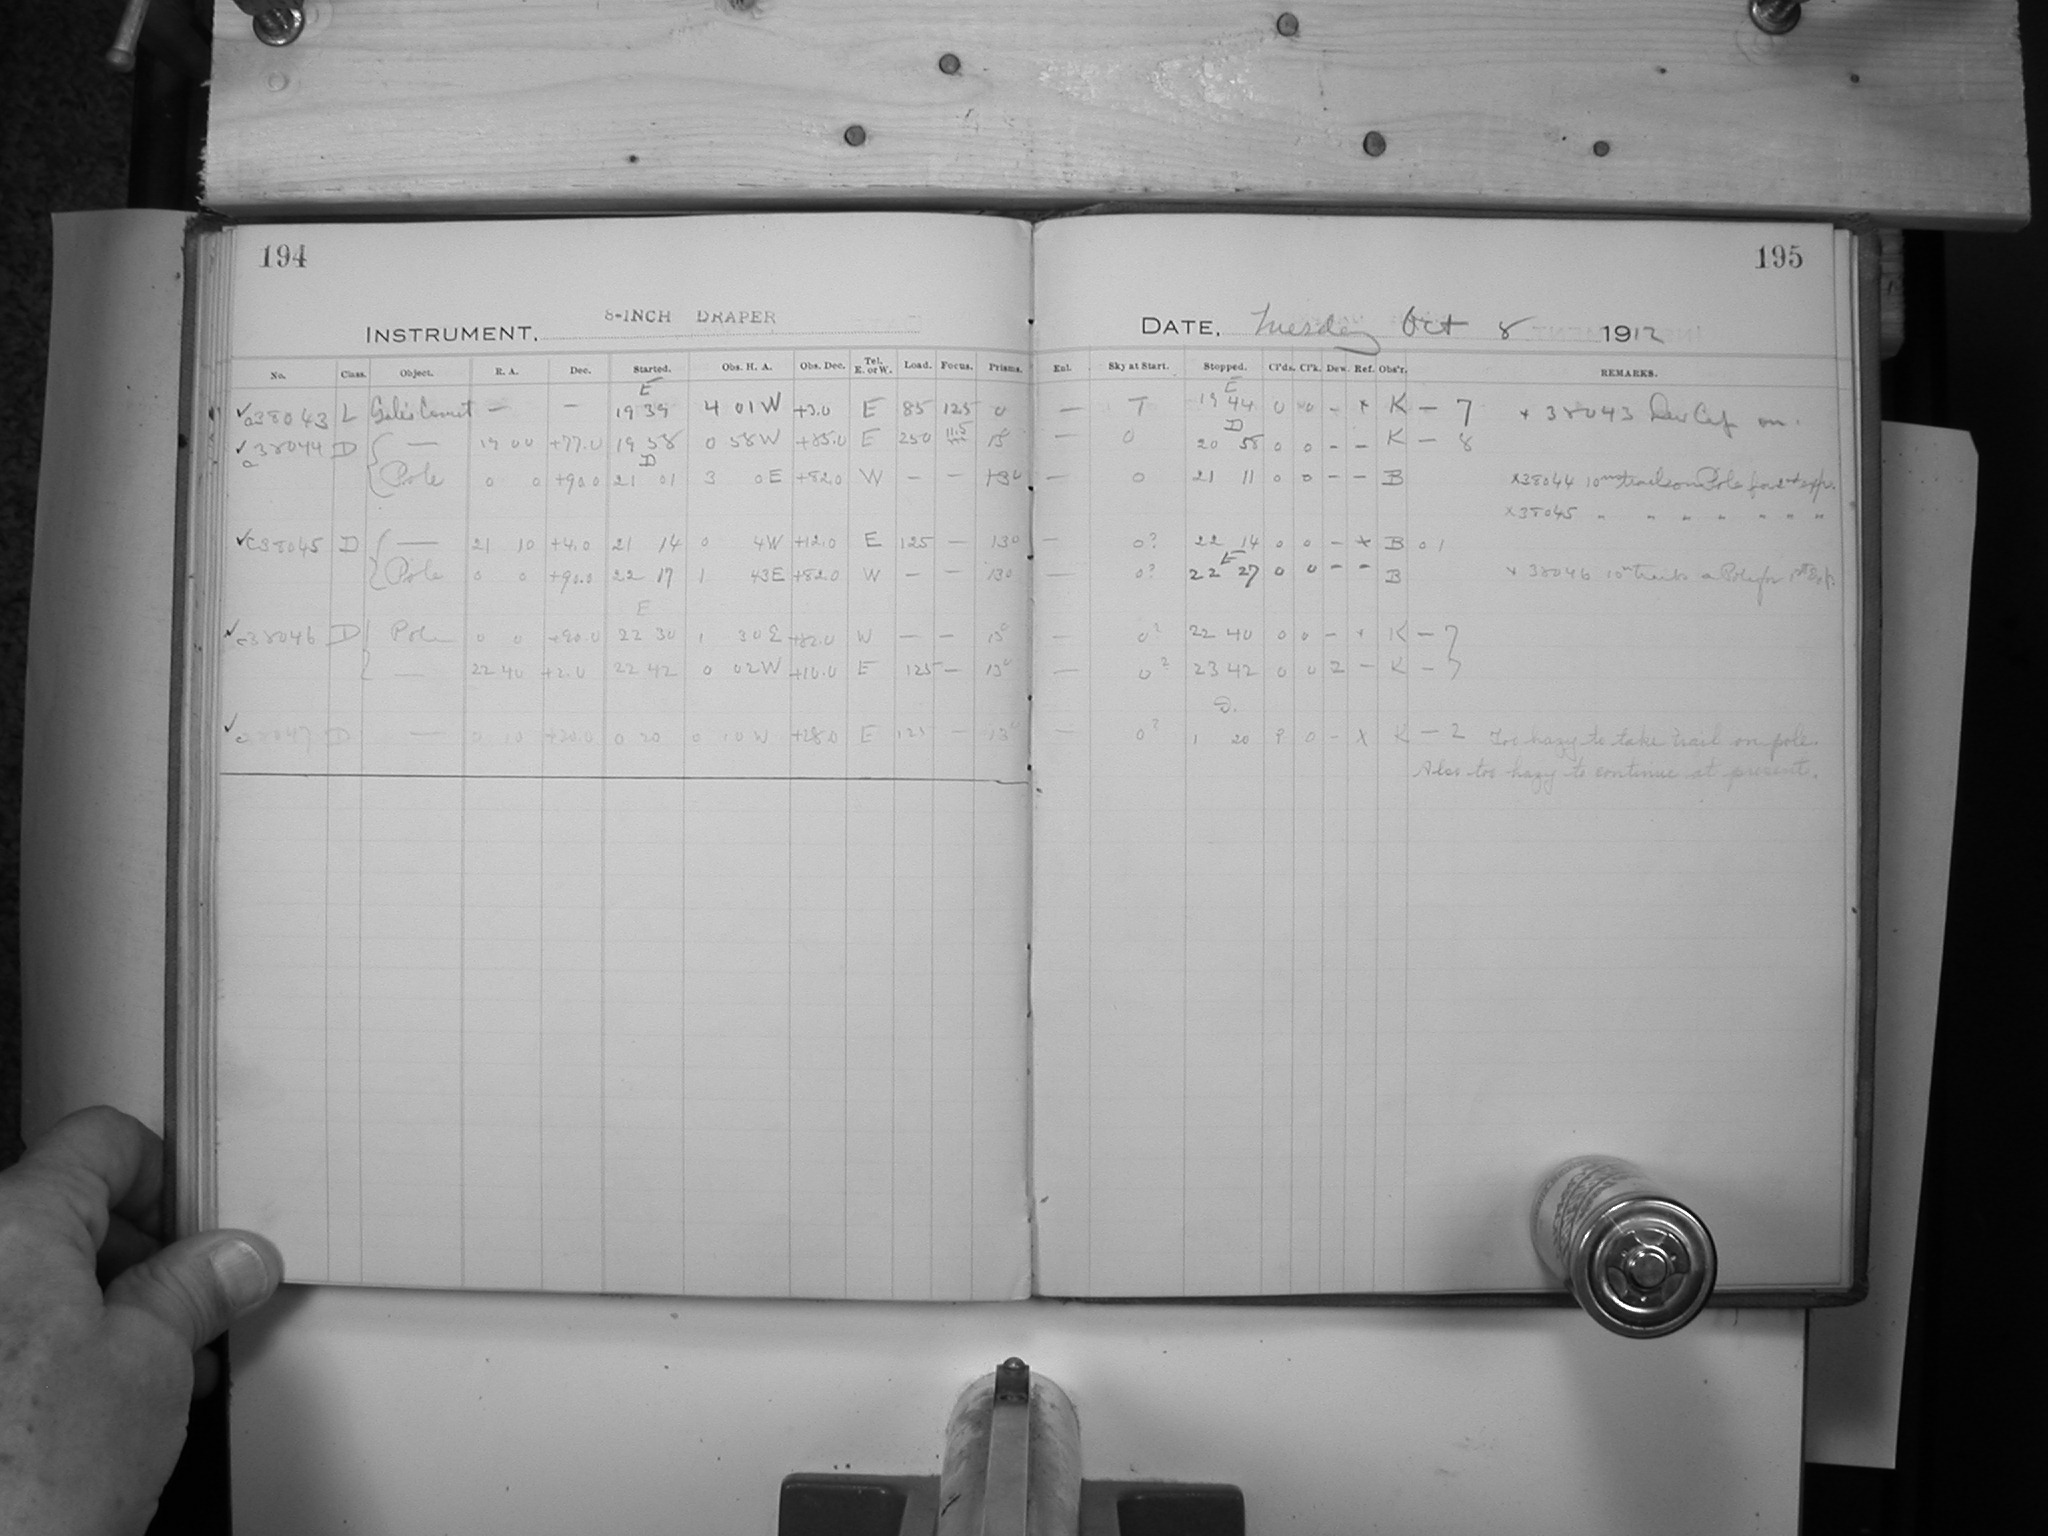 194
195
INSTRUMENT. 8-INCH DRAPER
DATE. Tuesday Oct 8 1912
No. Class. Object. R. A. Dec. Started. Obs. H. A. Obs. Dec. Tel. E. or W. Load. Focus. Prisms. Enl. Sky at Start. Stopped. Cl'ds. Cl'k. Dew. Ref. Obs'r. REMARKS.
E E
✓ c38043 L Gale's Comet — — 19 39 4 01 W +3.0 E 85 125 0 — T 19 44 0 0 - x K - 7 x 38043 Dew Cap on.
D
✓ c38044 D { — 19 00 +77.0 19 58 0 58 W +85.0 E 250 11.5 15° — 0 20 58 0 0 - - K - 8
D
Pole 0 0 +90.0 21 01 3 0 E +82.0 W — — 130 — 0 21 11 0 0 - - B x38044 10m trails on Pole for 2nd exp.
x38045 " " " " " " "
✓ c38045 D { — 21 10 +4.0 21 14 0 4 W +12.0 E 125 — 130 — 0? 22 14 0 0 - x B 01
E
Pole 0 0 +90.0 22 17 1 43 E +82.0 W — — 130 — 0? 22 27 0 0 - - B x 38046 10m trails on Pole for 1st Exp.
E
✓ c38046 D { Pole 0 0 +90.0 22 30 1 30 E +82.0 W — — 15° — 0? 22 40 0 0 - x K - 7
— 22 40 +2.0 22 42 0 02 W +10.0 E 125 — 13° — 0? 23 42 0 0 2 - K - 7
D.
✓ c38047 D — 0 10 +20.0 0 20 0 10 W +28.0 E 125 — 13° — 0? 1 20 ? 0 - x K - 2 Too hazy to take trail on pole.
Also too hazy to continue at present.